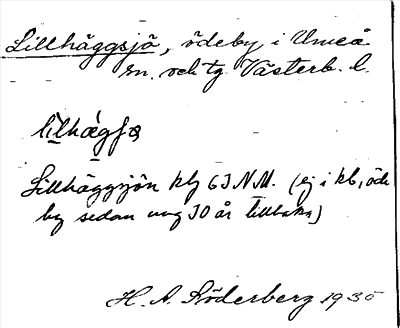 Lillhäggsjö, ödeby, i Umeå
sn. och tg Västerb. l.
Lillhäggsjön kbl 63 N.M. (ej i kb, öde
by sedan ung 30 år tillbaka)
H. A. Söderberg 1935